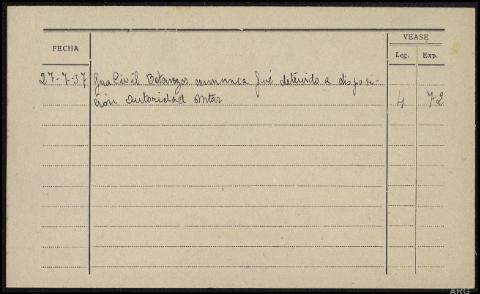 VEASE
FECHA
Leg. Exp.
27-7-37 Gua Civil Betanzos comunica fué detenido a disposi-
ción autoridad mtar 4 72
ARG